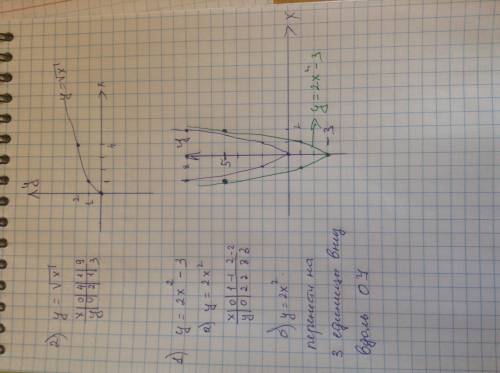 2) y = √x
x | 0 | 4 | 1 | 9
y | 0 | 2 | 1 | 3
y
2
1
4
x
y = √x
y = 2x² - 3
a) y = 2x²
x | 0 | 1 | -1 | 2 | -2
y | 0 | 2 | 2 | 8 | 8
б) y = 2x²
перенести на
3 единицы вниз
вдоль OY
y
8
5
2
-3
x
y = 2x² - 3